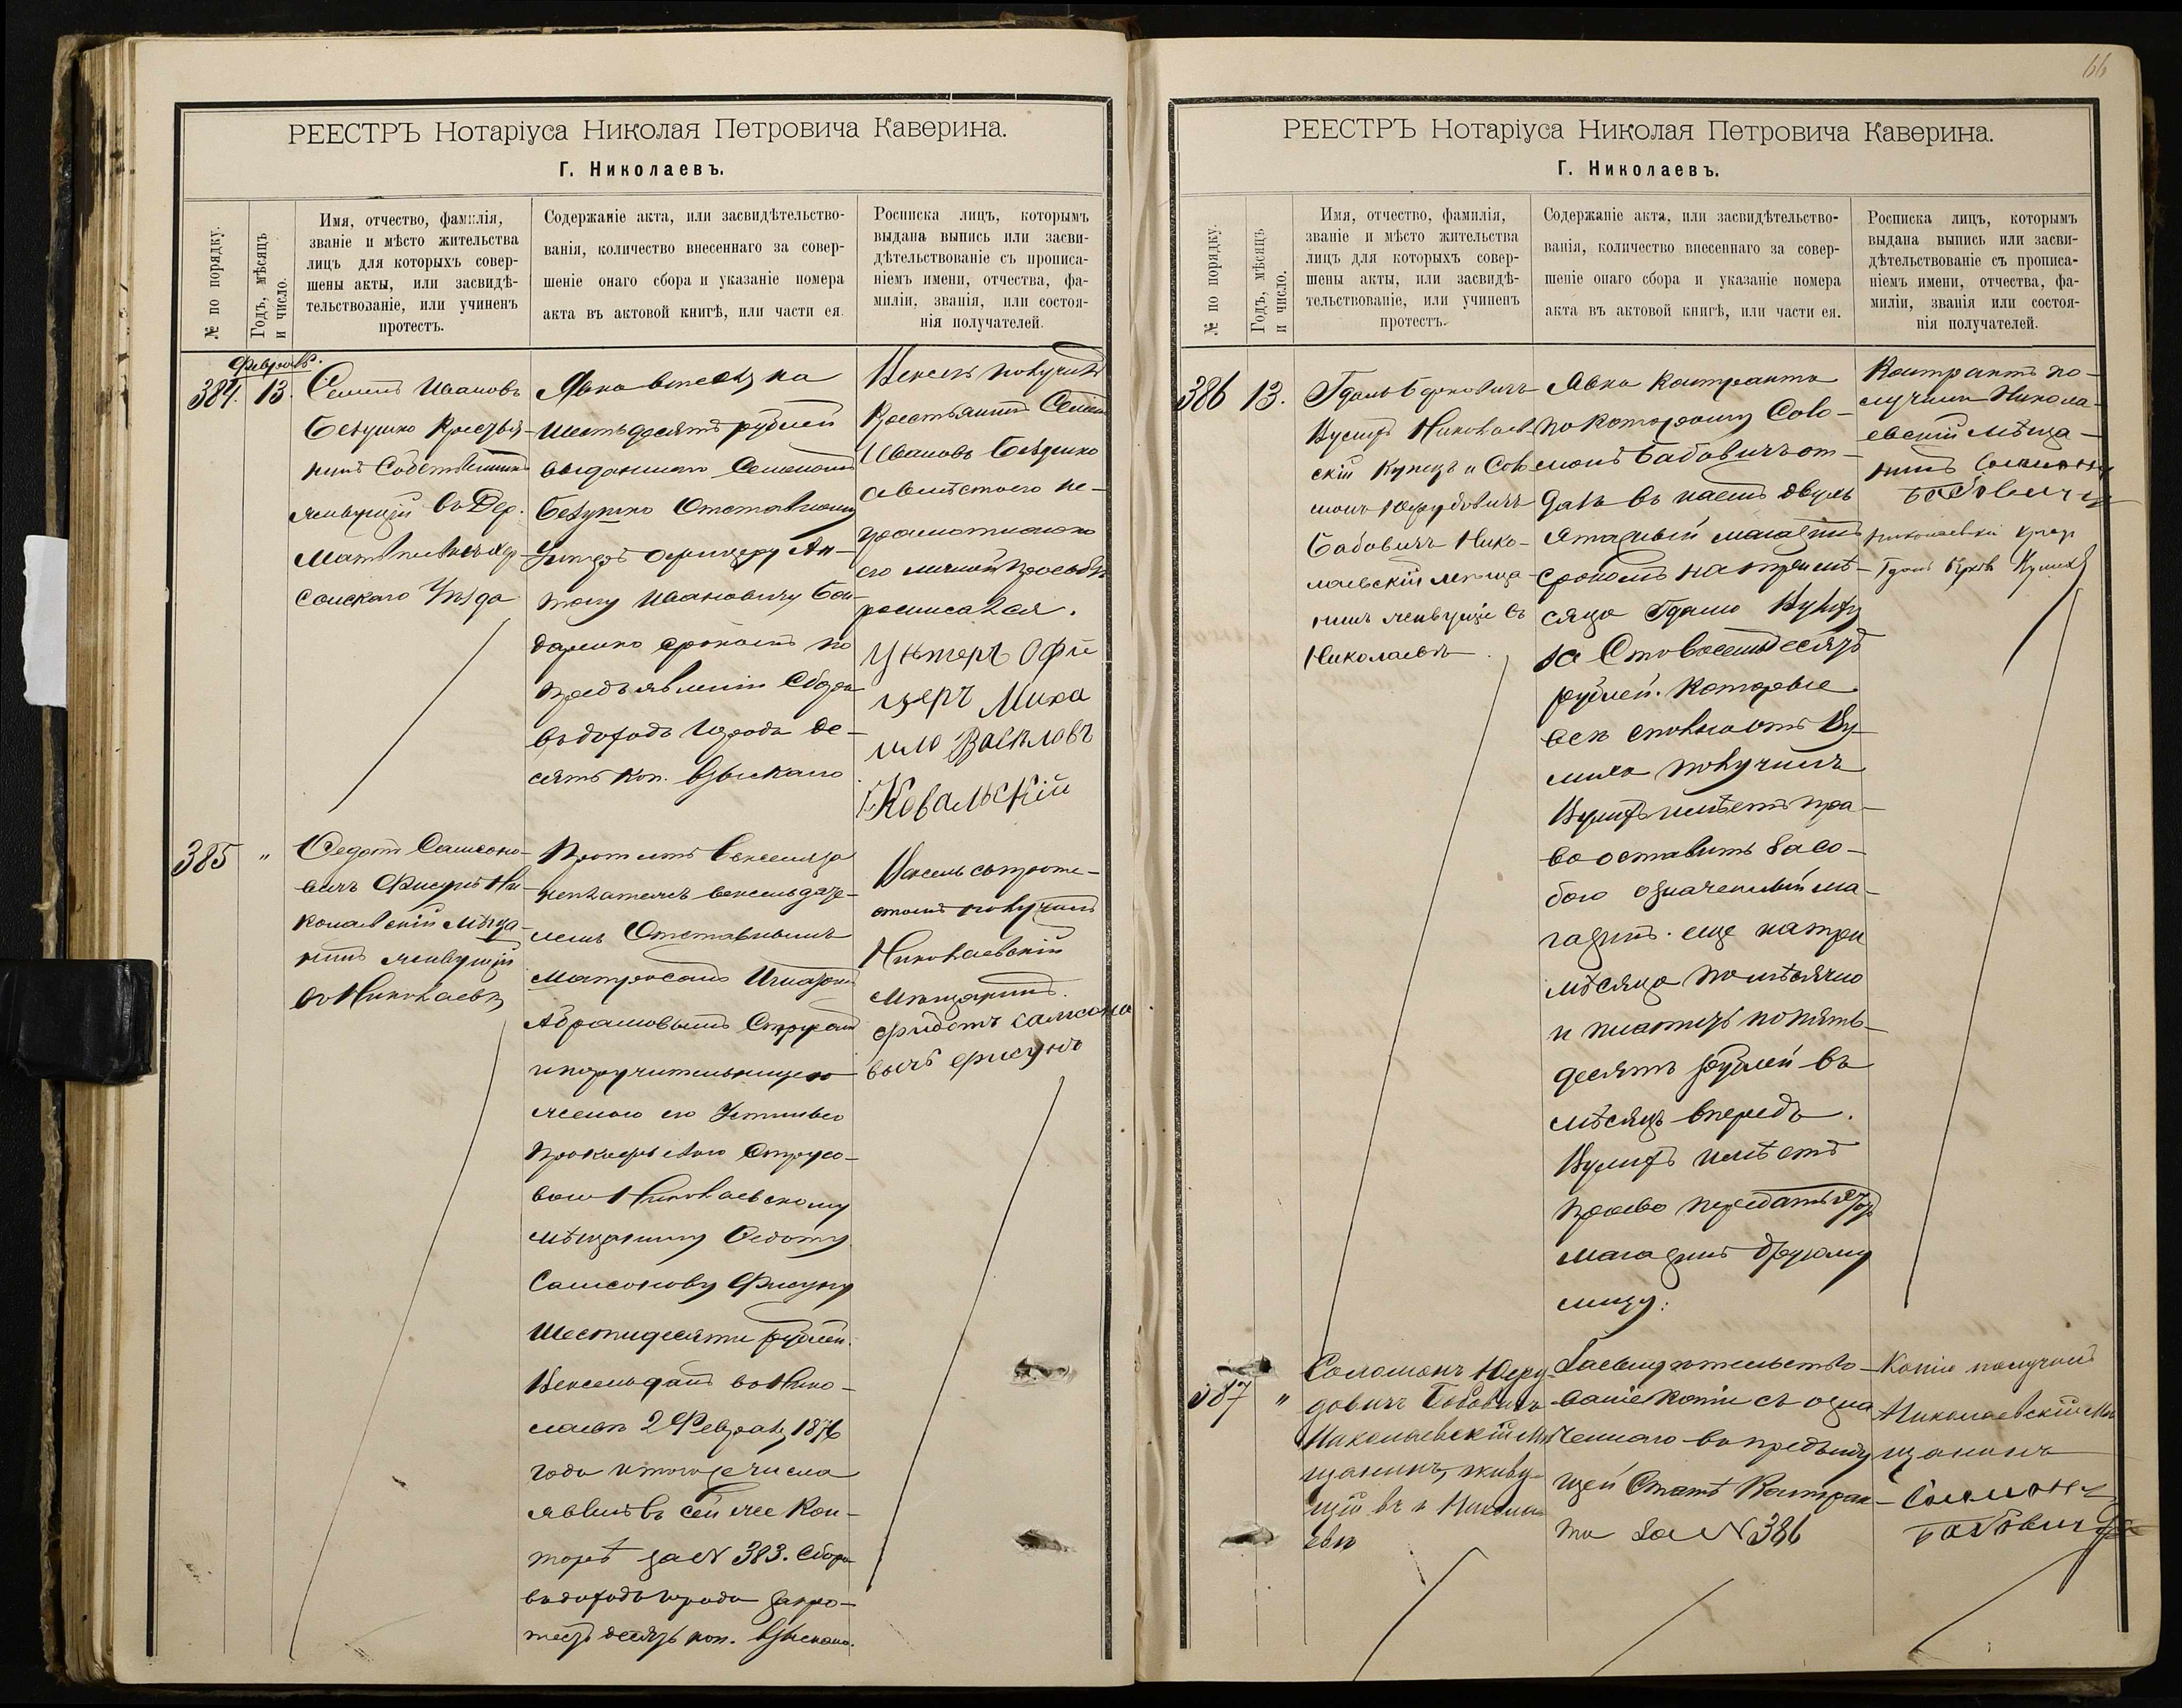 РЕЕСТРЪ Нотаріуса Николая Петровича Каверина.
Г. Николаевъ.
№ по порядку.
Годъ, мѣсяцъ
и число.
Имя, отчество, фамилія,
званіе и мѣсто жительства
лицъ для которыхъ совер-
шены акты, или засвидѣ-
тельствованіе, или учиненъ
протестъ.
Содержаніе акта, или засвидѣтельство-
ванія, количество внесеннаго за совер-
шеніе онаго сбора и указаніе номера
акта въ актовой книгѣ, или части ея.
Росписка лицъ, которымъ
выдана выпись или засви-
дѣтельствованіе съ прописа-
ніемъ имени, отчества, фа-
миліи, званія, или состоя-
нія получателей.
384.
13.
Семенъ Ивановъ
Бевушко Крестья-
нинъ Собственникъ
живущій въ Дер.
Сонскаго Уѣзда
Явка векселя на
Шестьдесятъ рублей
выданнаго Семеномъ
Бевушко Отставному
Унтеръ офицеру Ан-
тону Ивановичу Бон-
даренко срокомъ по
предъявленіи Сбора
въ доходъ города де-
сять коп. взыскано
Вексель получилъ
Крестьянинъ Семенъ
Ивановъ Бевушко
а вмѣсто его не-
грамотнаго по
его личной просьбѣ
росписался.
Унтеръ Офи
церъ Миха
ило Василовъ
Ковальскій
385
"
Федотъ Самсоно-
вичъ Фисунъ Ни-
колаевскій Мѣща-
нинъ живущій
въ Николаевѣ
Протестъ векселя за
неплатежъ векселедате-
лемъ Отставнымъ
Матросомъ Игнатомъ
Абрамовымъ
и поручительницею
женою его Устиньею
Прокофьевою
вою Николаевскому
мѣщанину Федоту
Самсонову Фисуну
Шестидесяти рублей.
Вексель данъ въ Нико-
лаевѣ 2 Февраля 1876
года и того же числа
явленъ въ сей же Кон-
торѣ за N 383. Сбора
въ доходъ города за про-
тестъ десять коп. взыскано.
Вексель съ проте-
стомъ получилъ
Николаевскій
Мѣщанинъ.
Фидотъ Самсоно
вычъ Фисунъ
66
РЕЕСТРЪ Нотаріуса Николая Петровича Каверина.
Г. Николаевъ.
№ по порядку.
Годъ, мѣсяцъ
и число.
Имя, отчество, фамилія,
званіе и мѣсто жительства
лицъ для которыхъ совер-
шены акты, или засвидѣ-
тельствованіе, или учиненъ
протестъ.
Содержаніе акта, или засвидѣтельство-
ванія, количество внесеннаго за совер-
шеніе онаго сбора и указаніе номера
акта въ актовой книгѣ, или части ея.
Росписка лицъ, которымъ
выдана выпись или засви-
дѣтельствованіе съ прописа-
ніемъ имени, отчества, фа-
миліи, званія или состоя-
нія получателей.
386
13.
Гдаль Берковичъ
Николаев-
скій Купецъ и Соло
монъ Юдовичъ
Бабовичъ Нико-
лаевскій мѣща-
нинъ живущіе въ
Николаевѣ.
Явка Контракта
по которому Соло-
монъ Бабовичъ от-
далъ въ наемъ двухъ
этажный магазинъ
срокомъ на три мѣ-
сяца Гдалю
за Сто восемьдесятъ
рублей. которые
всѣ сполна отъ
получилъ
имѣетъ пра-
во оставить за со-
бою означенный ма-
газинъ еще на три
мѣсяца помѣсячно
и платитъ по пять-
десятъ рублей въ
мѣсяцъ впередъ.
имѣетъ
право передать этотъ
магазинъ другому
лицу.
Контрактъ по-
лучили Никола-
евскій мѣща-
нинъ Соломонъ
Бабовичъ
Николаевскій купецъ
387
"
Соломонъ
довичъ Бабовичъ
Николаевскій мѣ
щанинъ, живу-
щій въ г. Никола
евѣ
Засвидѣтельство-
ваніе копіи съ озна
ченнаго въ предыду
щей Статьѣ Контрак-
та за N 386
Копію получилъ
Николаевскій мѣ
щанинъ
Соломонъ
Бабовичъ